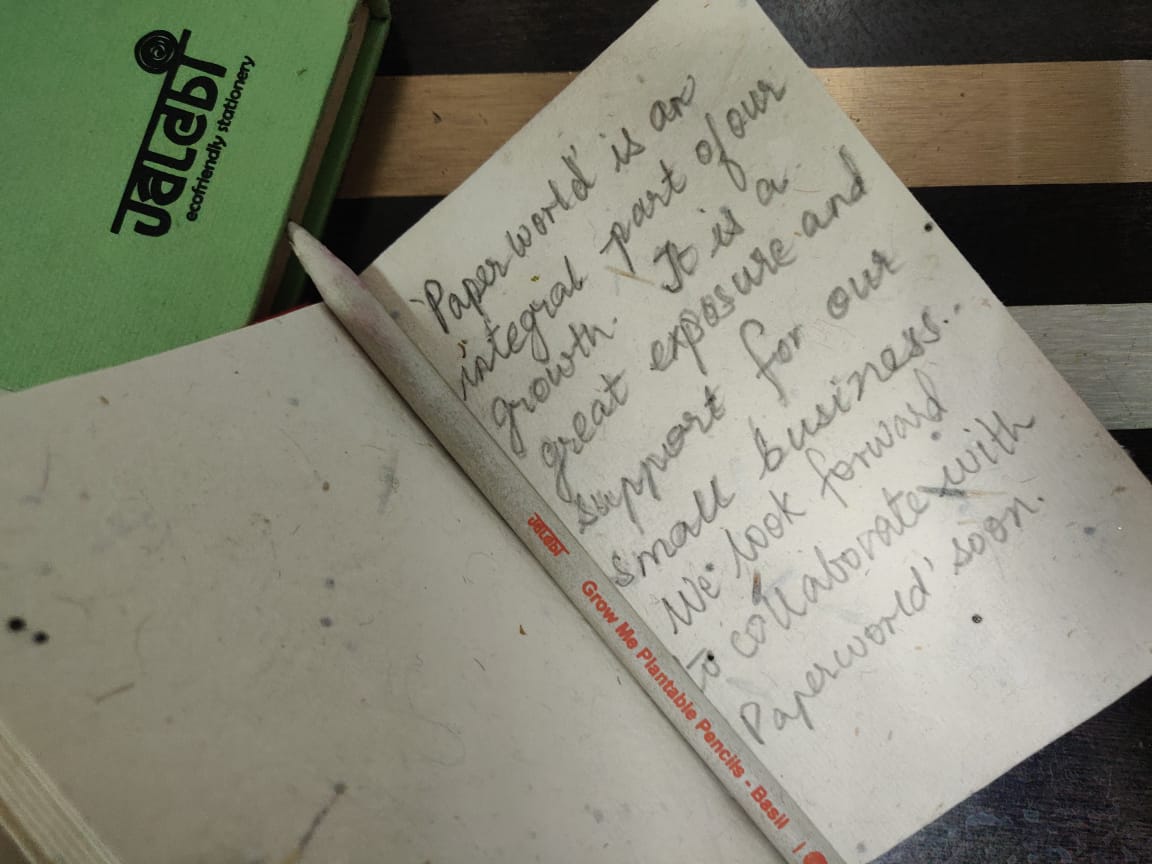 JALEBI
ecofriendly stationery
'Paperworld' is an
integral part of our
growth. It is a
great exposure and
support for our
small business..
We look forward
to collaborate with
Paperworld' soon.
JALEBI
Grow Me Plantable Pencils - Basil |